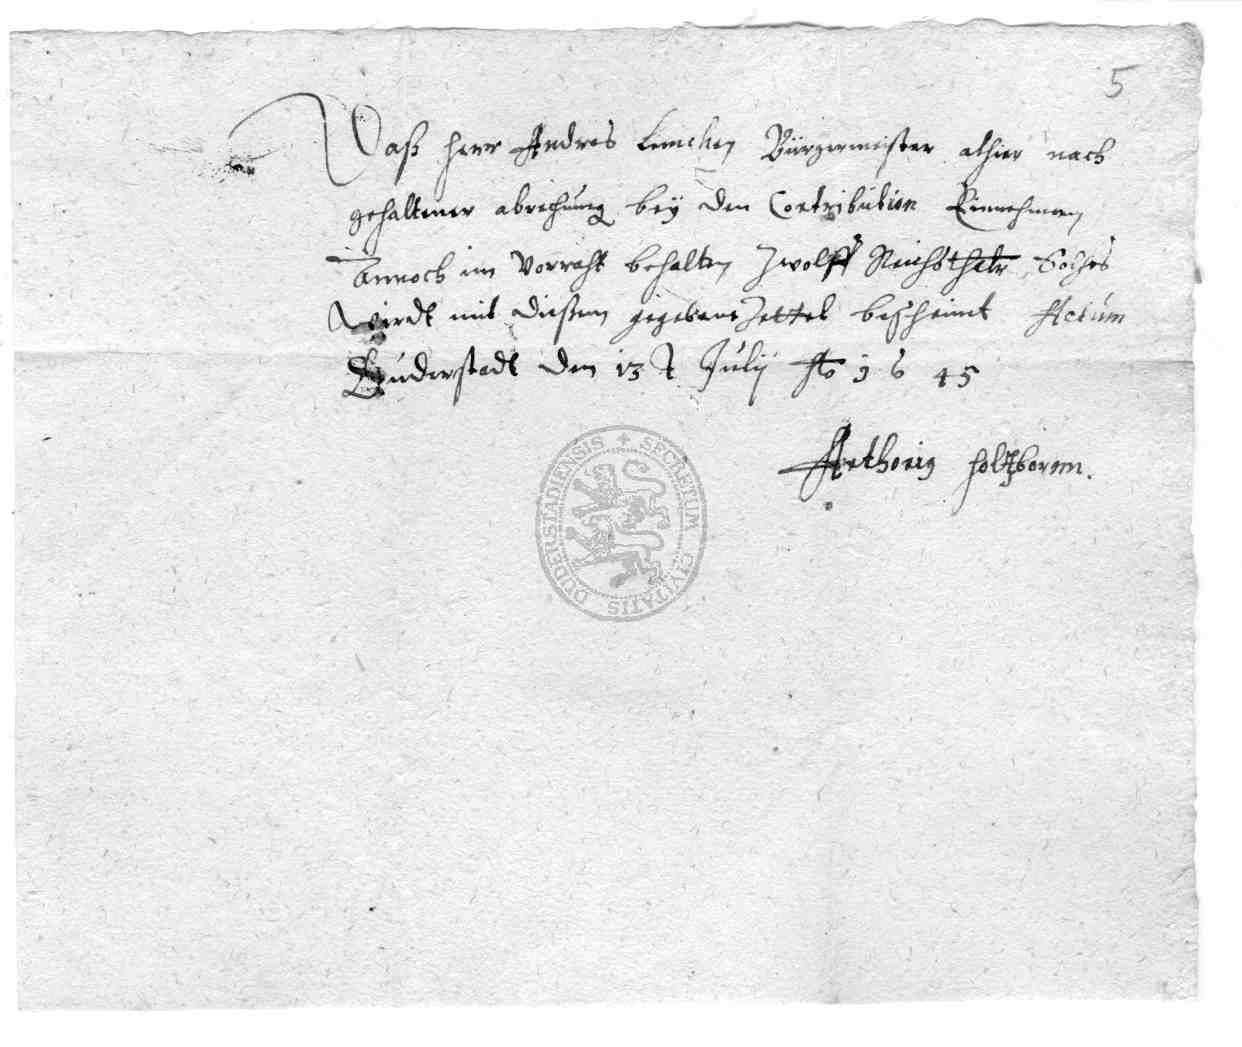 5
Daß herr Andres Linchen Bürgermeister alhier nach
gehaltener abrechnung bey den Contribution Einnehmern
annoch im Vorraht behalten Zwolff Reichsthalr, Solches
wirdt mit diesem gegebene Zettel bescheint Actum
Duderstadt den 13 t Julij Ao 1645
Anthonig holtzboren.
SECRETUM CIVITATIS DUDERSTADIENSIS